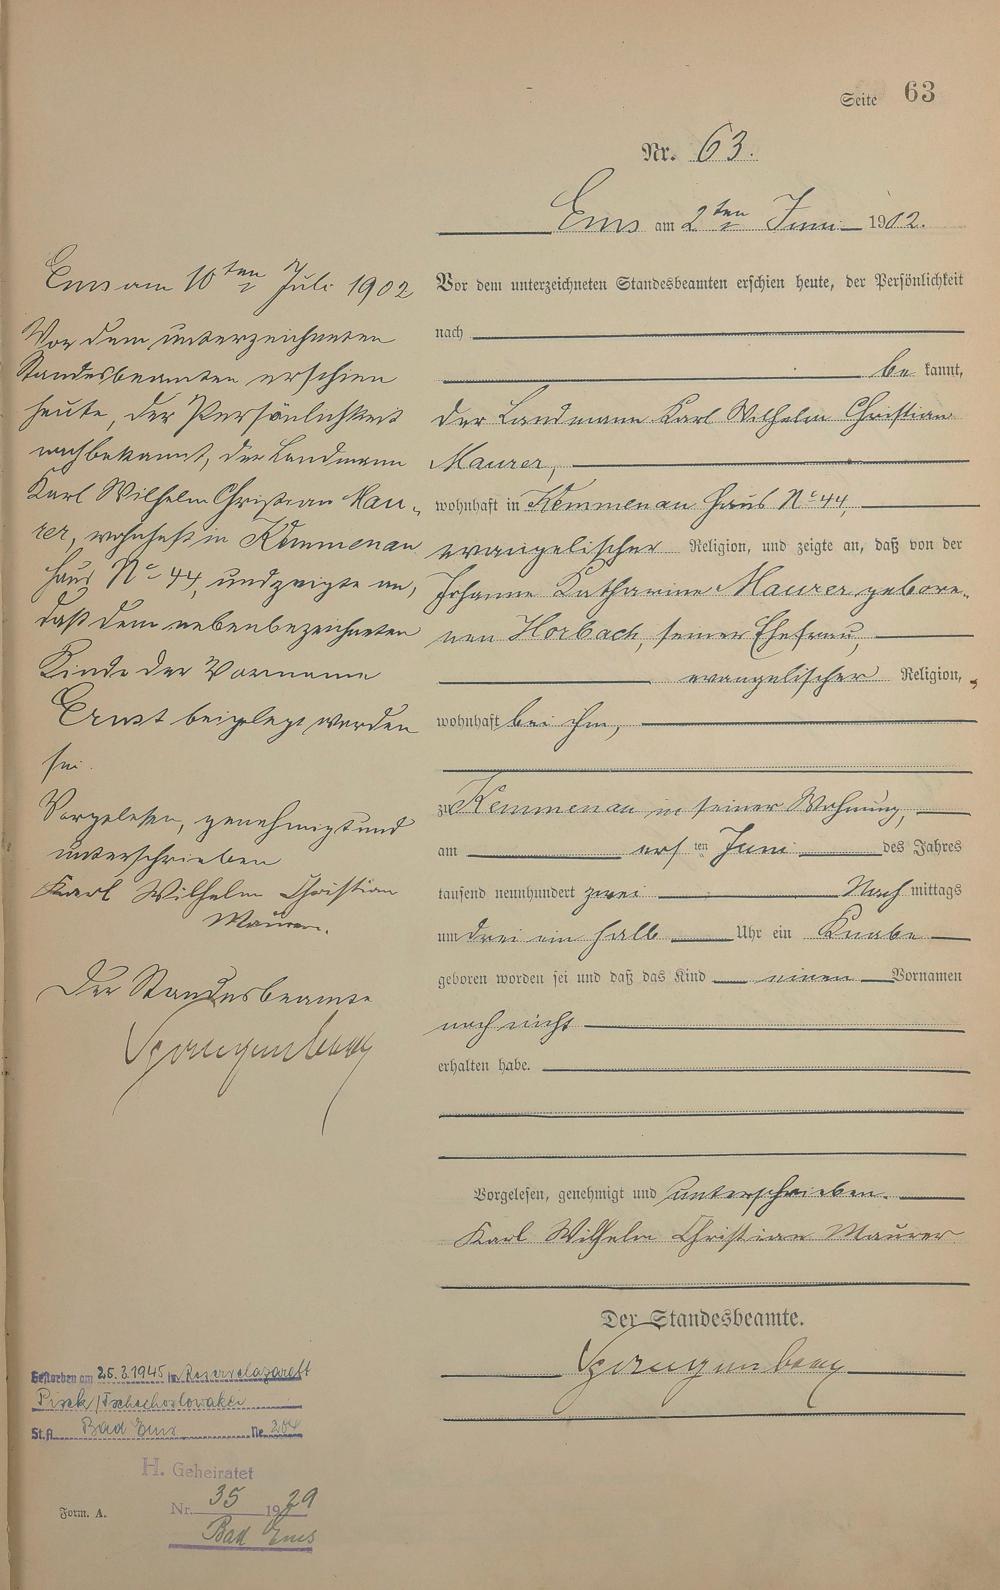 Seite 63
Nr. 63.
Ems am 2ten Juni 1902.
Vor dem unterzeichneten Standesbeamten erschien heute, der Persönlichkeit
nach
be kannt,
der Landmann Karl Wilhelm Christian
Maurer,
wohnhaft in Kemmenau Haus No 44,
evangelischer Religion, und zeigte an, daß von der
Johanne Katharine Maurer gebore-
nen Horbach, seiner Ehefrau,
evangelischer Religion,
wohnhaft bei ihm,
zu Kemmenau in seiner Wohnung,
am ersten Juni des Jahres
tausend neunhundert zwei Nach mittags
um drei ein halb Uhr ein Knabe
geboren worden sei und daß das Kind einen Vornamen
noch nicht
erhalten habe.
Vorgelesen, genehmigt und unterschrieben.
Karl Wilhelm Christian Maurer
Der Standesbeamte.
Ems am 10ten Juli 1902
Vor dem unterzeichneten
Standesbeamten erschien
heute, der Persönlichkeit
nach bekannt, der Landmann
Karl Wilhelm Christian Mau-
rer, wohnhaft in Kemmenau
Haus No 44, und zeigte an,
daß dem nebenbezeichneten
Kinde der Vorname
Ernst beigelegt worden
sei.
Vorgelesen, genehmigt und
unterschrieben
Karl Wilhelm Christian
Maurer.
Der Standesbeamte
Gestorben am 25.3.1945 in Reservelazarett
Pisek/Tschechoslowakei
St.A. Bad Ems Nr. 204
H. Geheiratet
Nr. 35 1929
Bad Ems
Form. A.